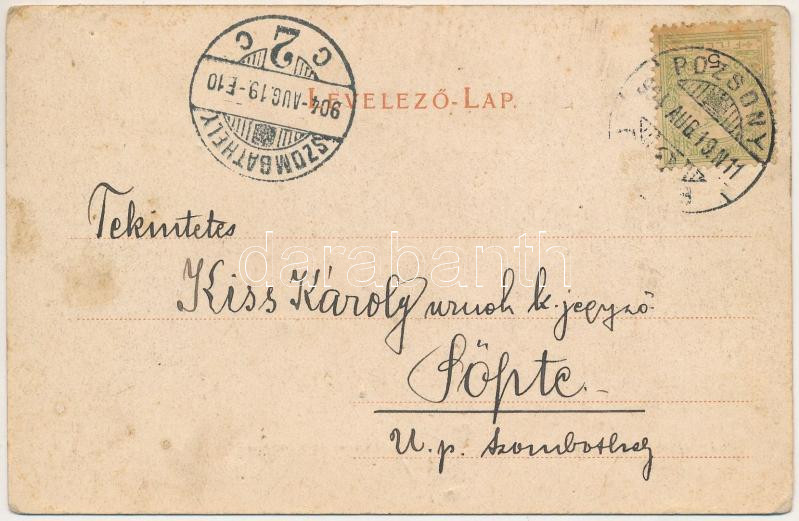 SZOMBATHELY
904-AUG.19.-E10
C 2 C
5
POZSONY
AUG.19.N11
LEVELEZŐ-LAP.
Tekintetes
Kiss Károly urnak k. jegyző
Söpte.
U. p. Szombathely
darabanth